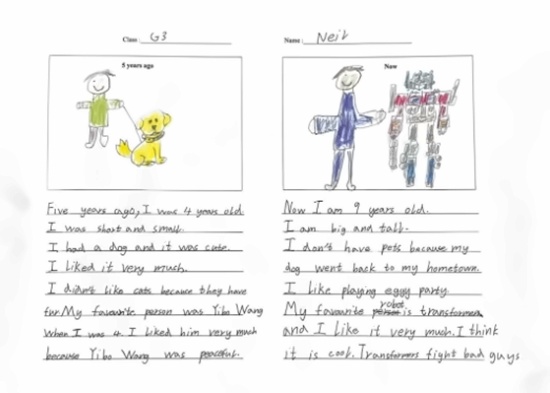 Class G3
Name Neil
5 years ago
Now
Five years ago, I was 4 years old.
I was short and small.
I had a dog and it was cute.
I liked it very much.
I didn't like cats because they have
fur. My favourite person was Yibo Wang
When I was 4. I liked him very much
because Yibo Wang was peaceful.
Now I am 9 years old.
I am big and tall.
I don't have pets because my
dog went back to my hometown.
I like playing eggy party.
My favourite robot is transformers
and I like it very much. I think
it is cool. Transformers fight bad guys